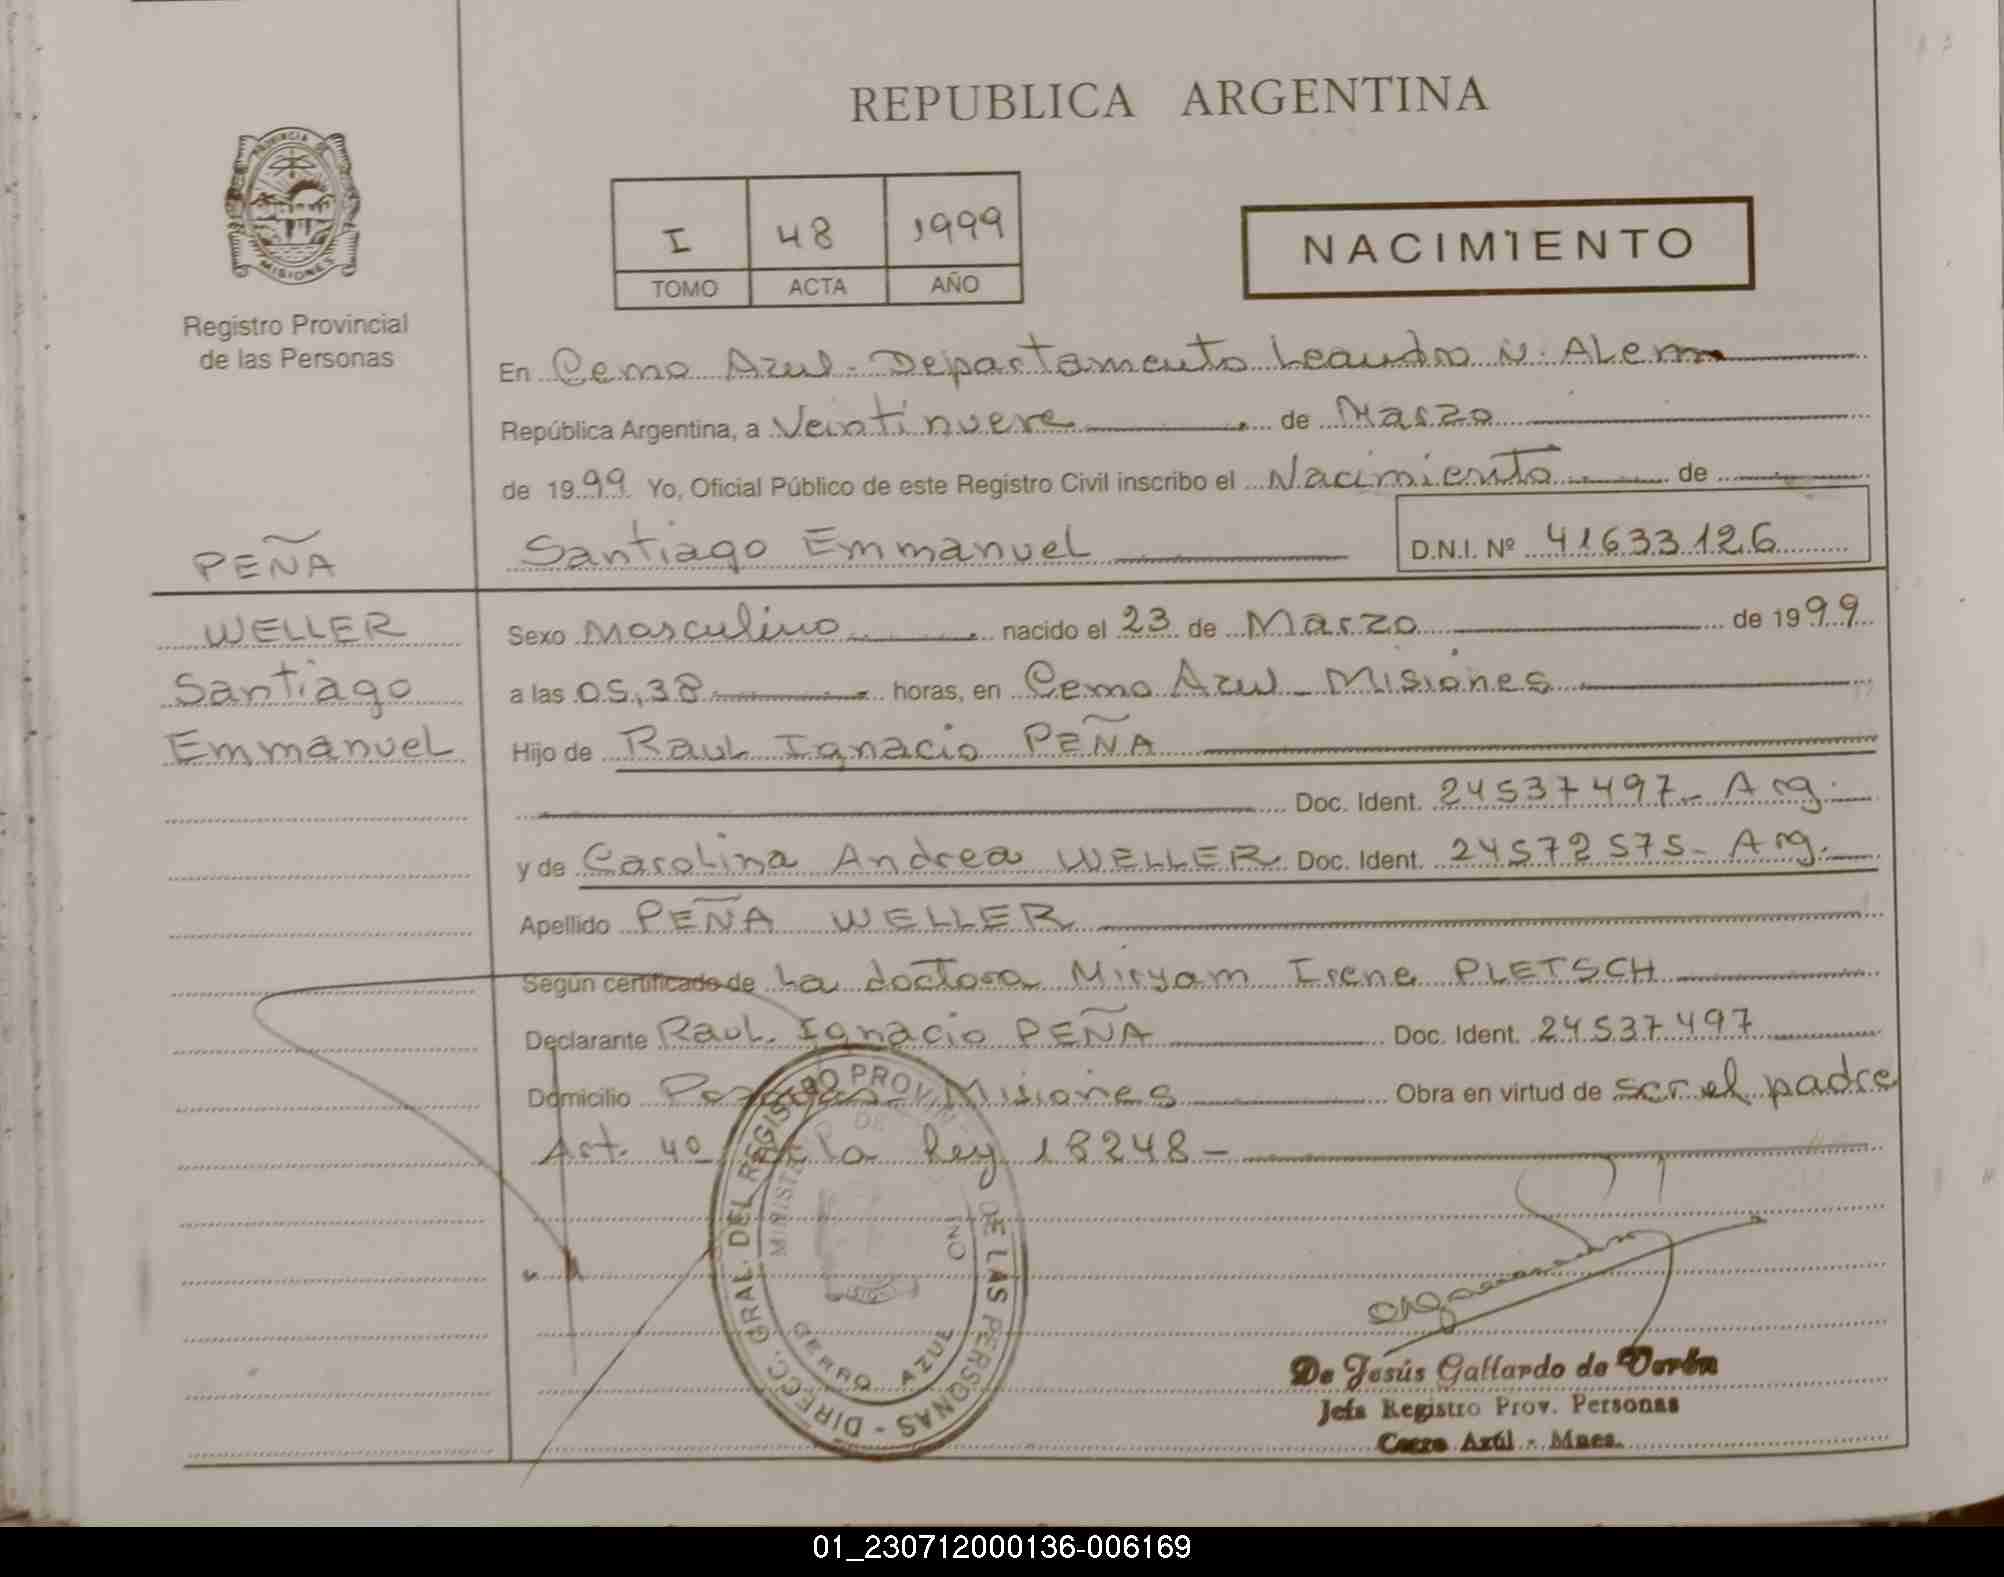 REPUBLICA ARGENTINA
PROVINCIA DE
MISIONES
Registro Provincial
de las Personas
I 48 1999
TOMO ACTA AÑO
NACIMIENTO
En Cerro Azul - Departamento Leandro N. ALem
República Argentina, a Veintinueve de Marzo
de 1999 Yo, Oficial Público de este Registro Civil inscribo el Nacimiento de
Santiago Emmanuel D.N.I. Nº 41633126
PEÑA
WELLER
Santiago
Emmanuel
Sexo Masculino nacido el 23 de Marzo de 1999
a las 05,38 horas, en Cerro Azul - Misiones
Hijo de Raul Ignacio PEÑA
Doc. Ident. 24537497- Arg.
y de Carolina Andrea WELLER Doc. Ident. 24572575- Arg.
Apellido PEÑA WELLER
Según certificado de La doctora Miryam Irene PLETSCH
Declarante Raul Ignacio PEÑA Doc. Ident. 24537497
Domicilio Posadas - Misiones Obra en virtud de ser el padre
Art. 4º de la Ley 18248-
DIRECC. GRAL. DEL REGISTRO PROVIN. DE LAS PERSONAS -
CERRO AZUL
De Jesús Gallardo de Verón
Jefa Registro Prov. Personas
Cerro Azúl - Mnes.
01_230712000136-006169